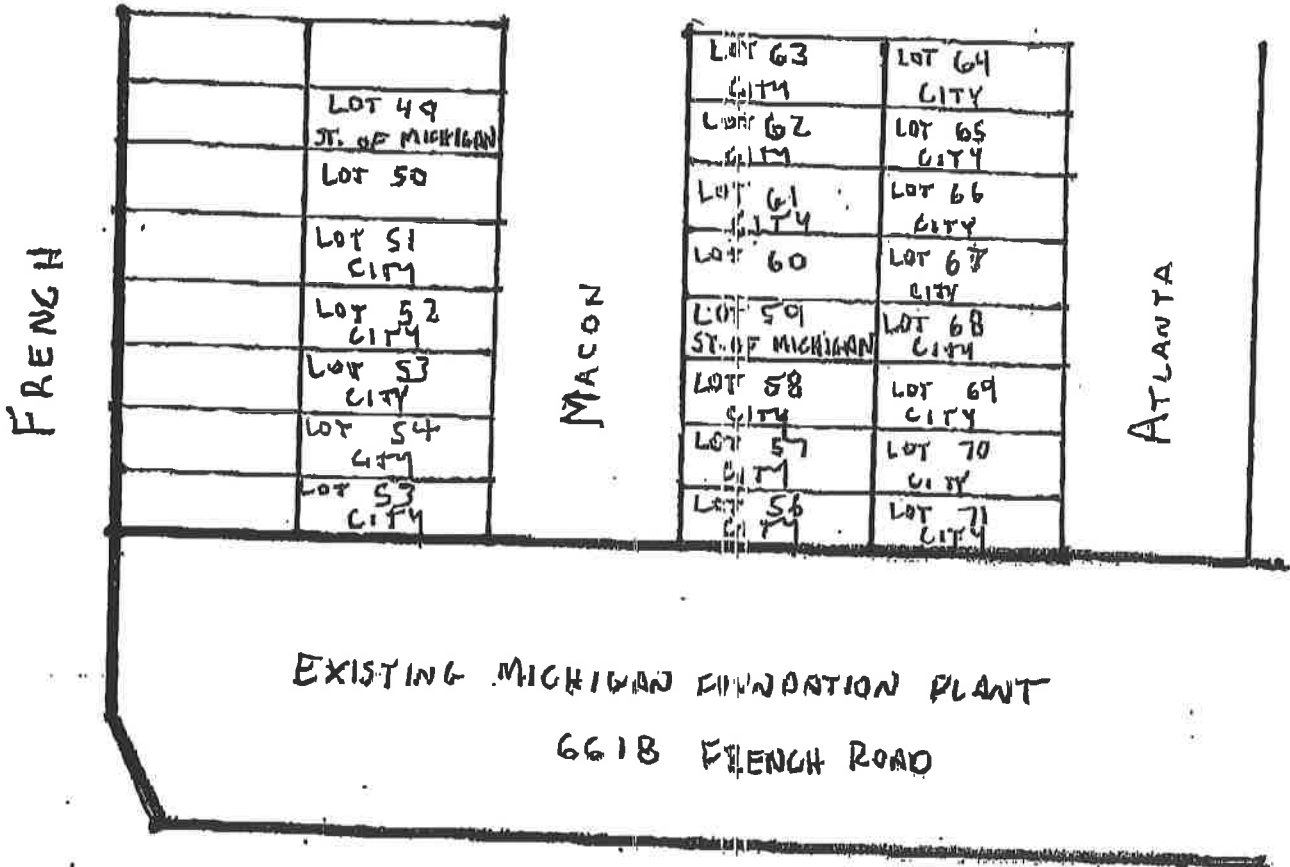 FRENCH
LOT 49
ST. OF MICHIGAN
LOT 50
LOT 51
CITY
LOT 52
CITY
LOT 53
CITY
LOT 54
CITY
LOT 53
CITY
MACON
LOT 63
CITY
LOT 62
CITY
LOT 61
CITY
LOT 60
LOT 59
ST. OF MICHIGAN
LOT 58
CITY
LOT 57
CITY
LOT 56
CITY
LOT 64
CITY
LOT 65
CITY
LOT 66
CITY
LOT 67
CITY
LOT 68
CITY
LOT 69
CITY
LOT 70
CITY
LOT 71
CITY
ATLANTA
EXISTING MICHIGAN FOUNDATION PLANT
6618 FRENCH ROAD